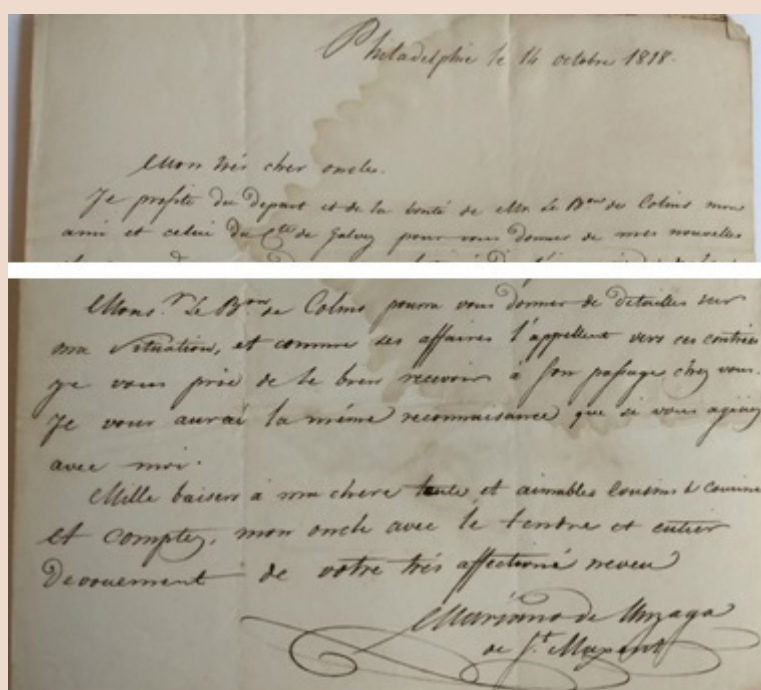 Philadelphie le 14 octobre 1818.
Mon très cher oncle.
Je profite du depart et de la bonté de Mr. Le Bon des Colins mon
ami et celui du Cte de Galvez pour vous donner de mes nouvelles
Monsr. Le Bon de Colins pourra vous donner de detailles sur
ma Situation, et comme ses affaires l'appellent vers ces contrées
je vous prie de le bien recevoir à son passage chez vous.
Je vous aurai la même reconnaissance que si vous agiriez
avec moi.
Mille baisers à ma chere tante, et aimables Cousins & Cousine
et comptez, mon oncle avec le tendre et entier
Devouement de votre très affectioné neveu
Mariano de Unzaga
de St. Maxent